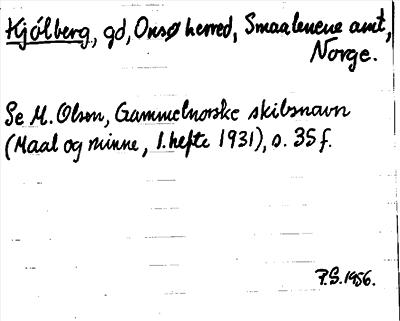 Kjölberg, gd, Onsø herred, Smaalenene amt,
Norge.
Se M. Olsen, Gammelnorske skibsnavn
(Maal og minne, 1. hefte 1931), s. 35 f.
P.S. 1956.